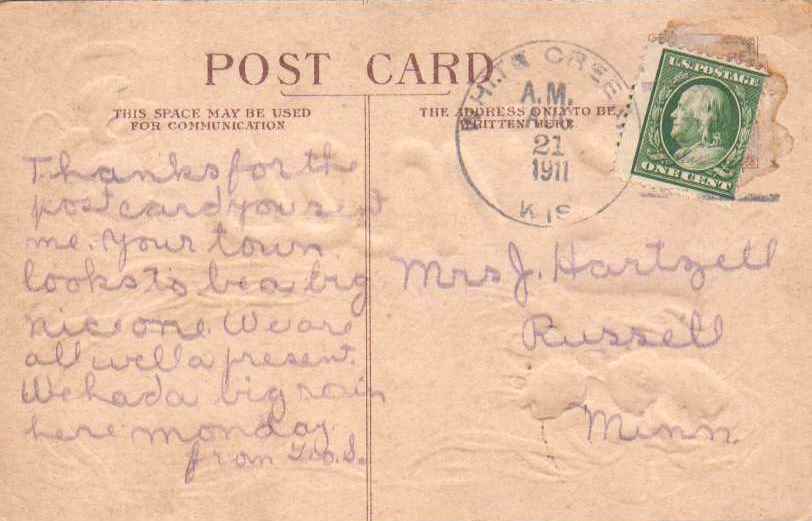 POST CARD
THIS SPACE MAY BE USED
FOR COMMUNICATION
THE ADDRESS ONLY TO BE
WRITTEN HERE
A.M.
21
1911
U.S. POSTAGE
ONE CENT
Thanks for the
post card you sent
me. Your town
looks to be a big
nice one. We are
all well a present.
We had a big rain
here monday.
from Geo. S.
Mrs J. Hartzell
Russell
Minn